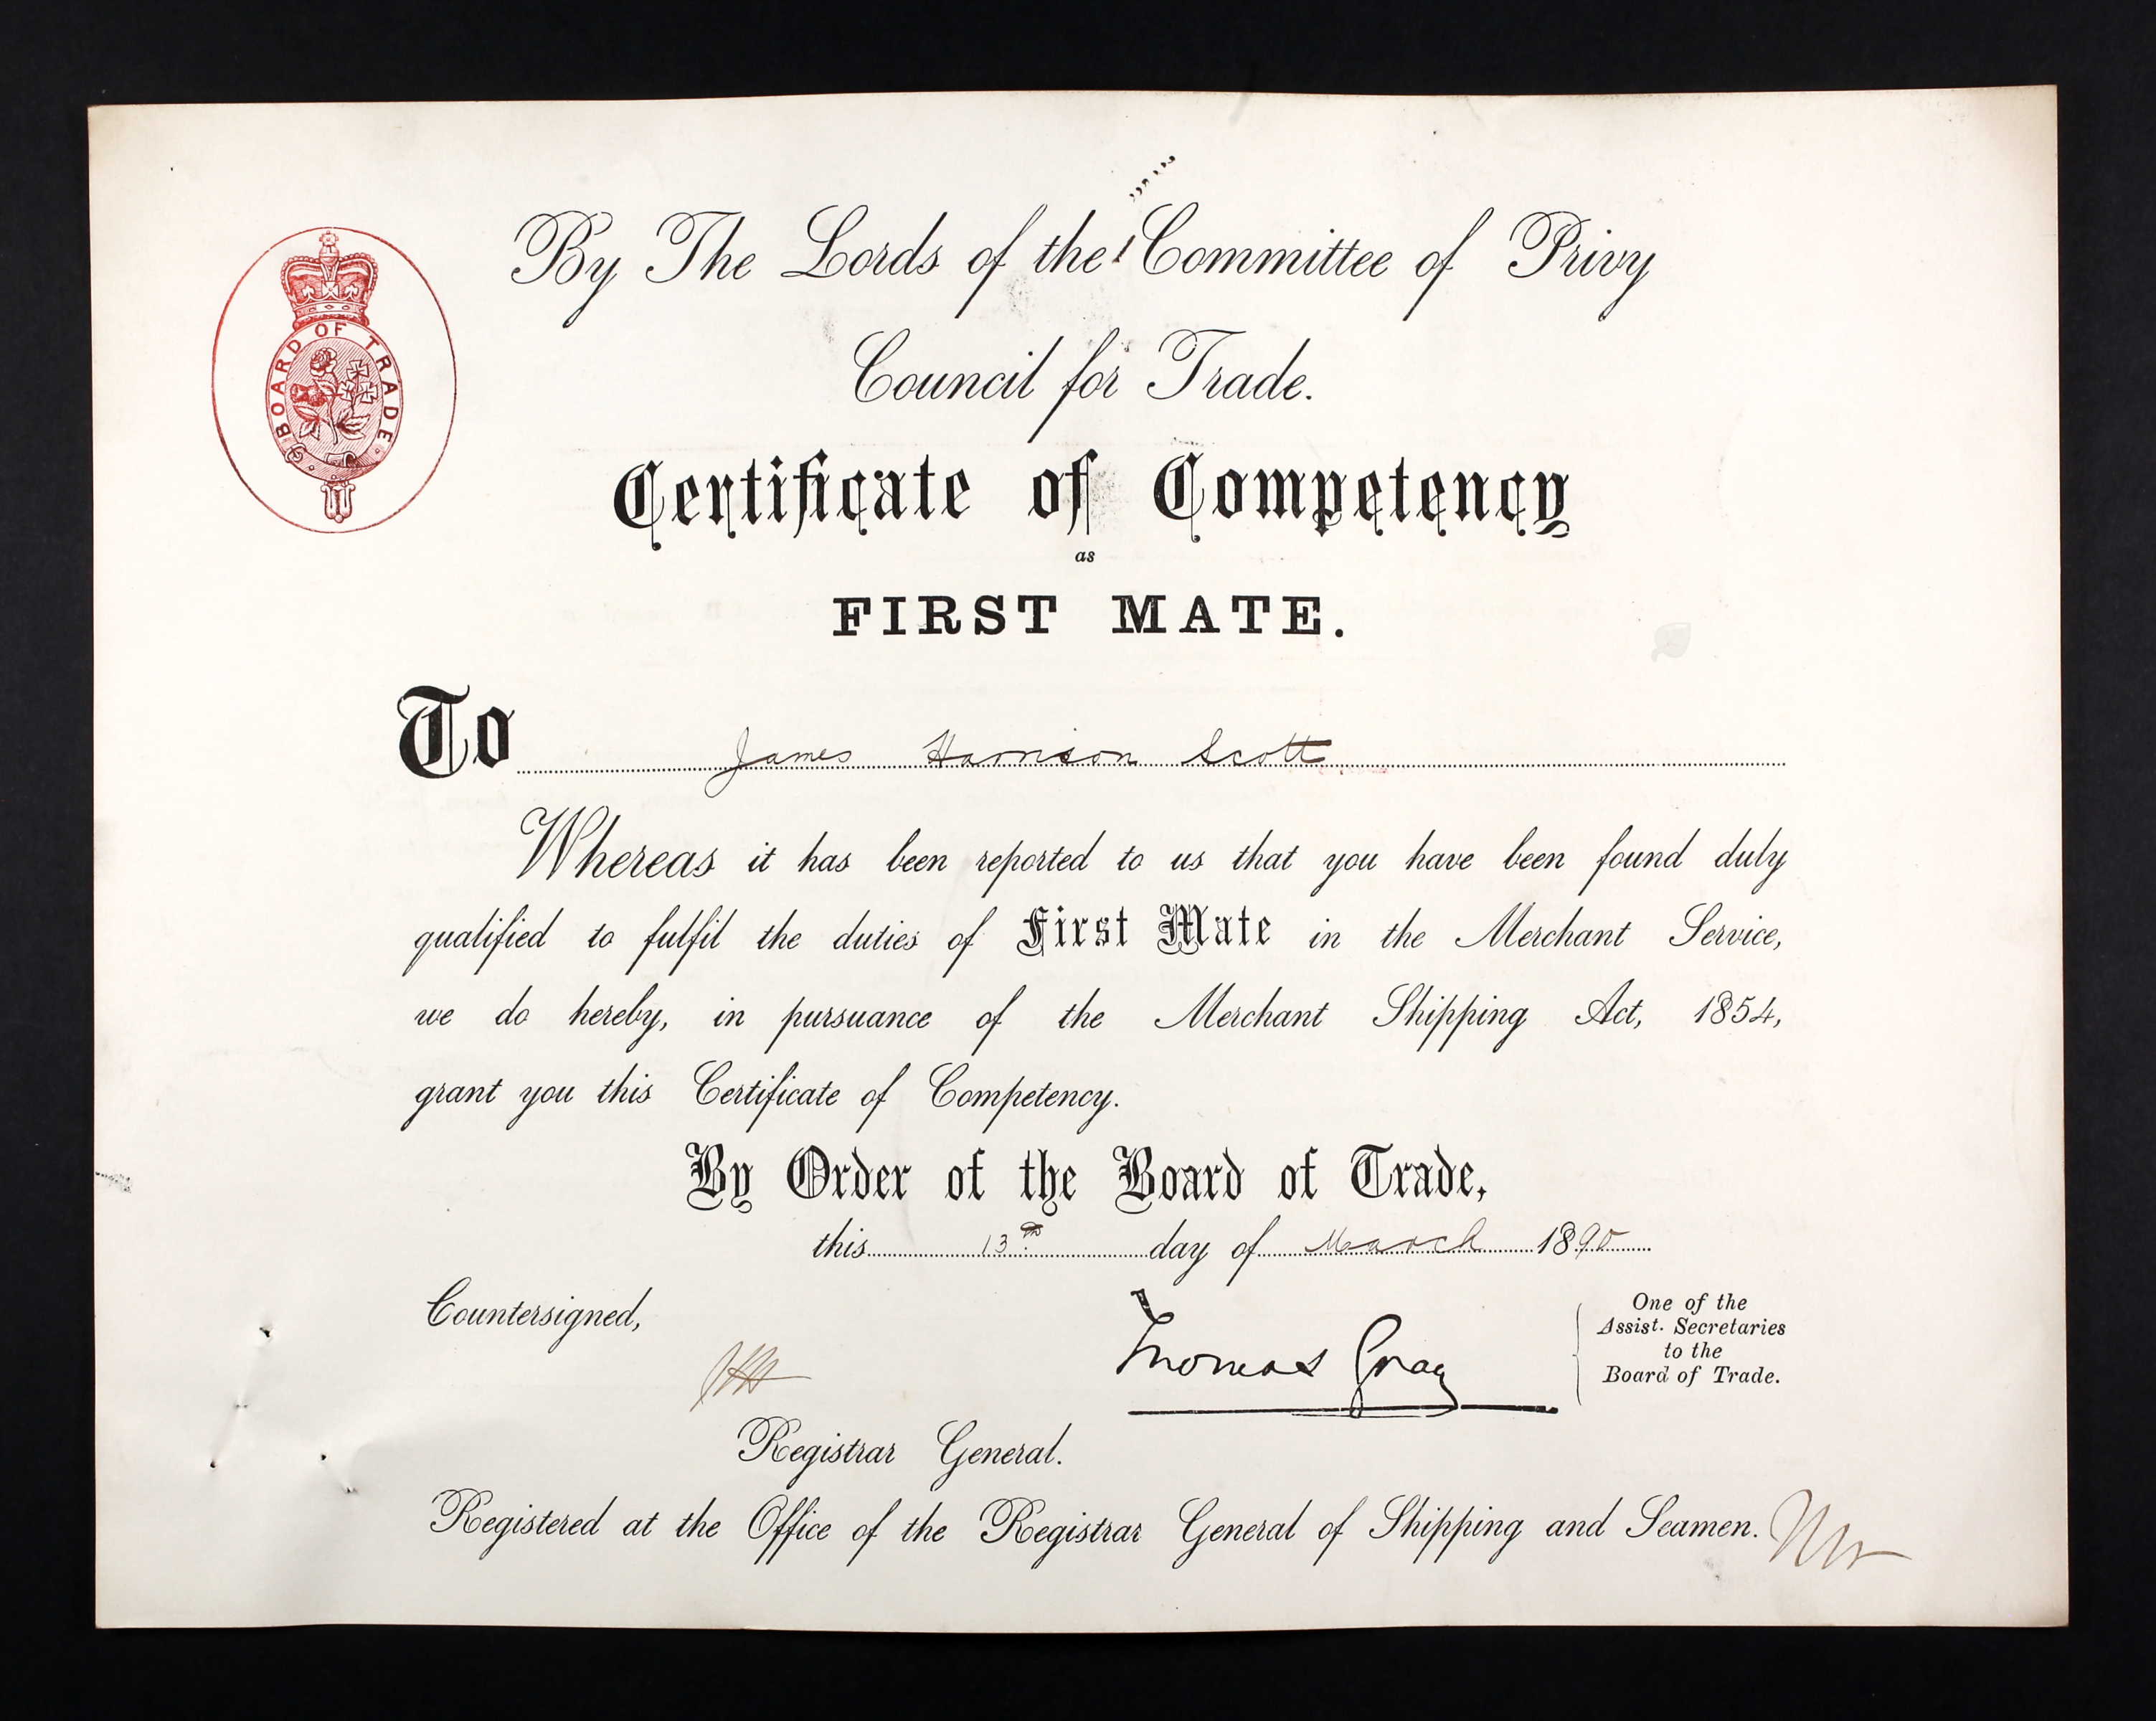 By The Lords of the Committee of Privy
Council for Trade.
BOARD OF TRADE
Certificate of Competency
as
FIRST MATE.
To James Harrison Scott
Whereas it has been reported to us that you have been found duly
qualified to fulfil the duties of First Mate in the Merchant Service,
we do hereby, in pursuance of the Merchant Shipping Act, 1854,
grant you this Certificate of Competency.
By Order of the Board of Trade,
this 13th day of March 1890
Countersigned,
Thomas Gray
One of the
Assist. Secretaries
to the
Board of Trade.
Registrar General.
Registered at the Office of the Registrar General of Shipping and Seamen.